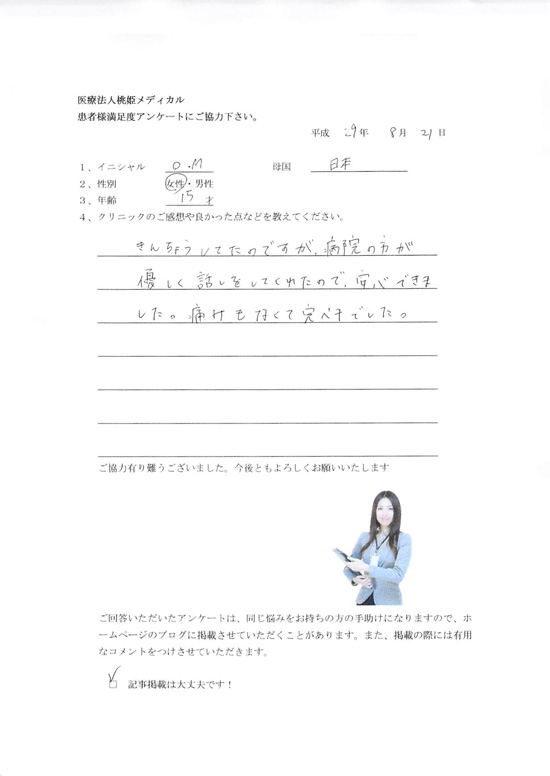 医療法人桃姫メディカル
患者様満足度アンケートにご協力下さい。
平成 29年 8月 21日
1、イニシャル O.M 母国 日本
2、性別 女性・男性
3、年齢 15才
4、クリニックのご感想や良かった点などを教えてください。
きんちょうしてたのですが、病院の方が
優しく話しをしてくれたので、安心できま
した。痛みもなくて完ペキでした。
ご協力有り難うございました。今後ともよろしくお願いいたします
ご回答いただいたアンケートは、同じ悩みをお持ちの方の手助けになりますので、ホ
ームページのブログに掲載させていただくことがあります。また、掲載の際には有用
なコメントをつけさせていただきます。
記事掲載は大丈夫です！